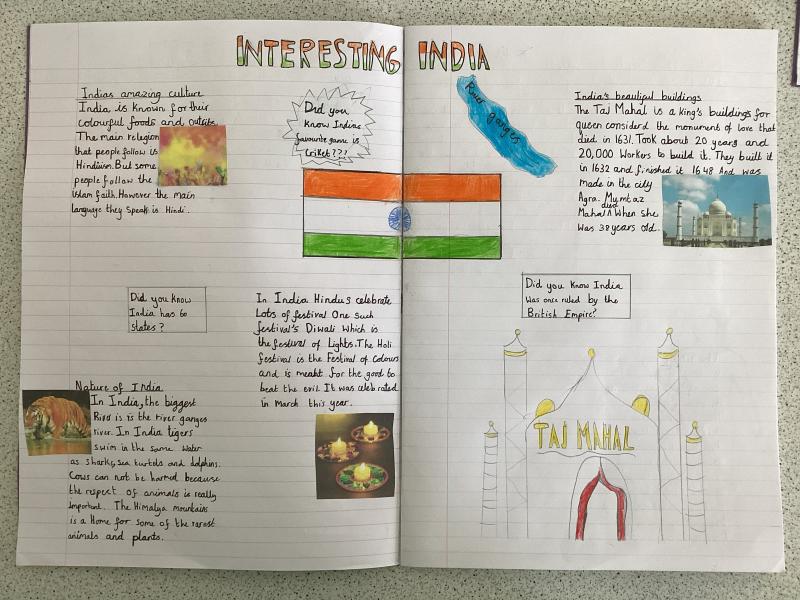 INTERESTING INDIA
Indias amazing culture
India is known for their
colourful foods and outfits.
The main relegion
that people follow is
Hinduism. But some
people follow the
islam faith. However the main
language they speak is Hindi.
Did you
know Indias
favourite game is
Criket???
River ganges
India's beautiful buildings
The Taj Mahal is a king's buildings for
queen considerd the monument of love that
died in 1631. Took about 20 years and
20,000 workers to build it. They built it
in 1632 and finished it 1648 And was
made in the city
Agra. Mumtaz
died
Mahal ^ When she
was 38 years old.
Did you know
India has 60
states?
In India Hindus celebrate
Lots of festival One such
festival's Diwali which is
the festival of Lights. The Holi
festival is the Festival of colours
and is meant for the good to
beat the evil. It was celebrated
in March this year.
Did you know India
was once ruled by the
British Empire?
Nature of India
In India, the biggest
River is is the river ganges
river. In India tigers
swim in the same water
as sharks, sea turtels and dolphins.
Cows can not be harmed because
the respect of animals is really
important. The Himalya mountains
is a Home for some of the rarest
animals and plants.
TAJ MAHAL